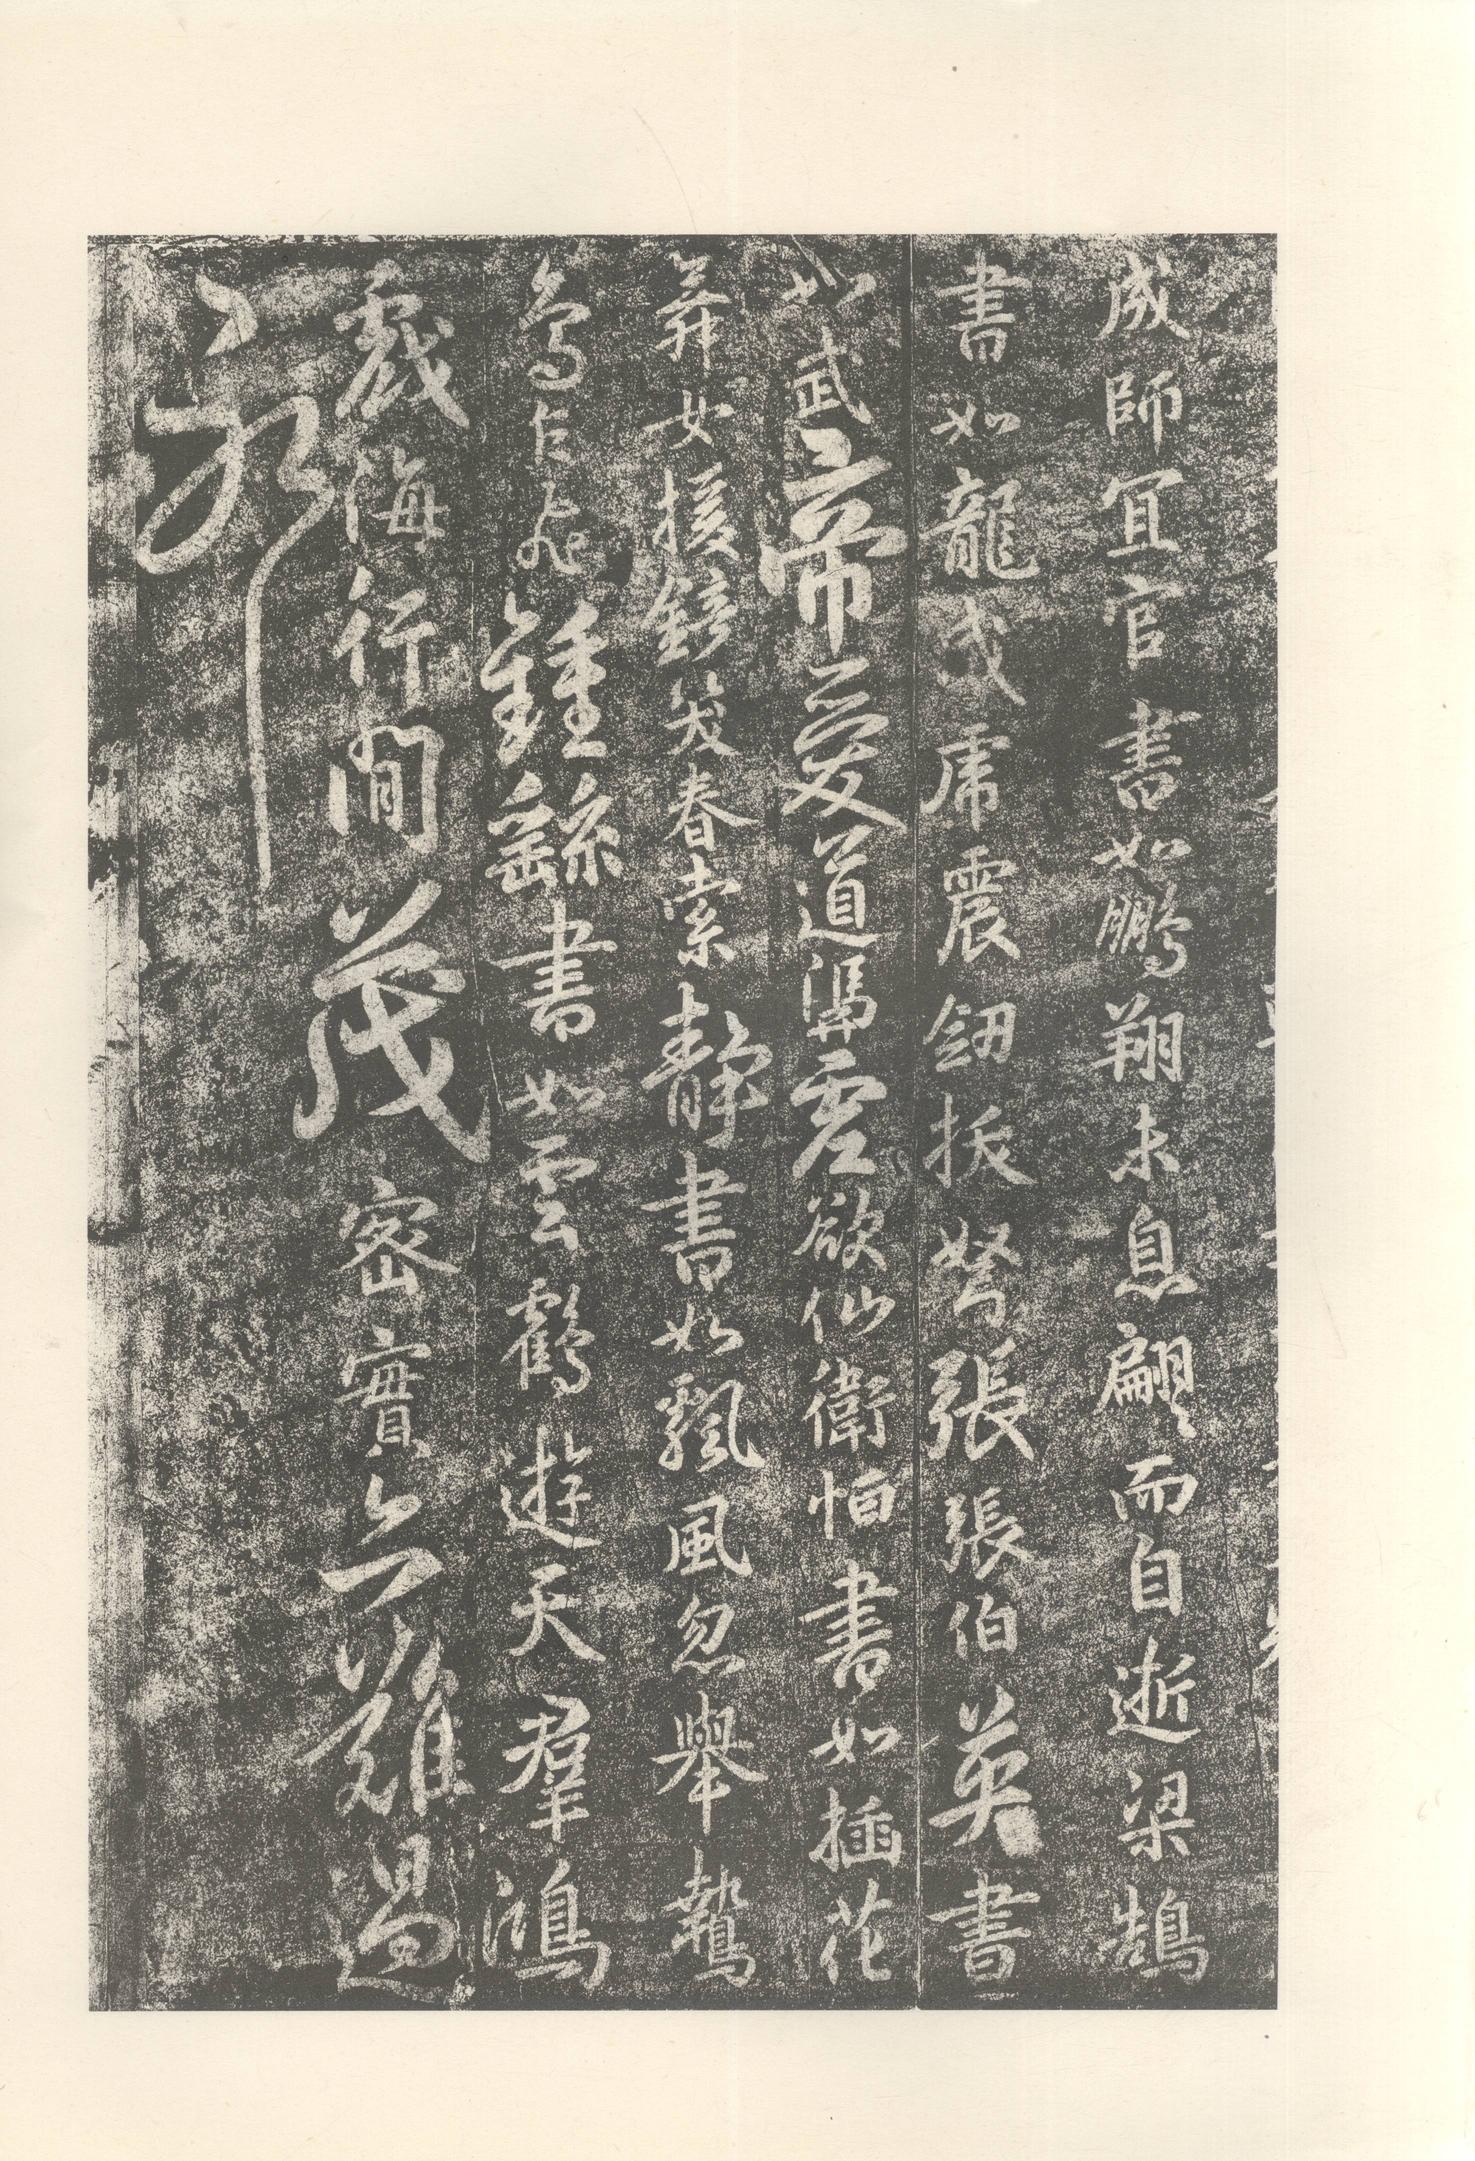 成師宜官書如鵬翔未息翩〻而自逝梁鵠
書如龍威虎震劔拔弩張張伯英書
如武帝愛道馮虚欲仙衛恒書如插花
舞女援鏡笑春索靖書如飄風忽舉鷙
鳥乍飛鍾繇書如雲鶴遊天羣鴻
戲海行間茂密實亦難過
耶